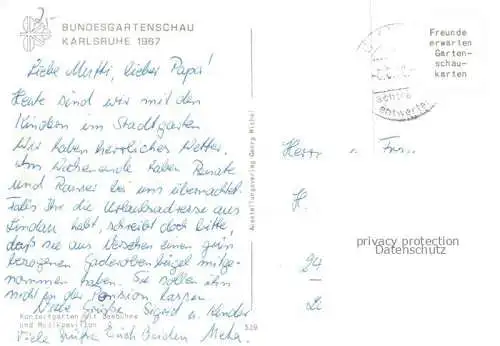 BUNDESGARTENSCHAU
KARLSRUHE 1967
Liebe Mutti, lieber Papa!
Heute sind wir mit den
Kindern im Stadtgarten
Wir haben herrliches Wetter.
Am Wochenende haben Renate
und Rainer bei uns übernachtet.
Falls Ihr die Urlaubsadresse aus
Lindau habt, schreibt doch bitte,
daß sie aus Versehen einen grün
bezogenen Garderobenbügel mitge-
nommen haben. Sie sollen ihn
nicht in der Pension lassen
Liebe Grüße Sigrid u. Kinder
Konzertgarten mit Seebühne
und Musikpavillon
Viele Grüße Euch beiden
539
Ausstellungsverlag Georg Michel
Freunde
erwarten
Garten-
schau-
karten
entwertet
Herrn u. Frau
H.
privacy protection
Datenschutz